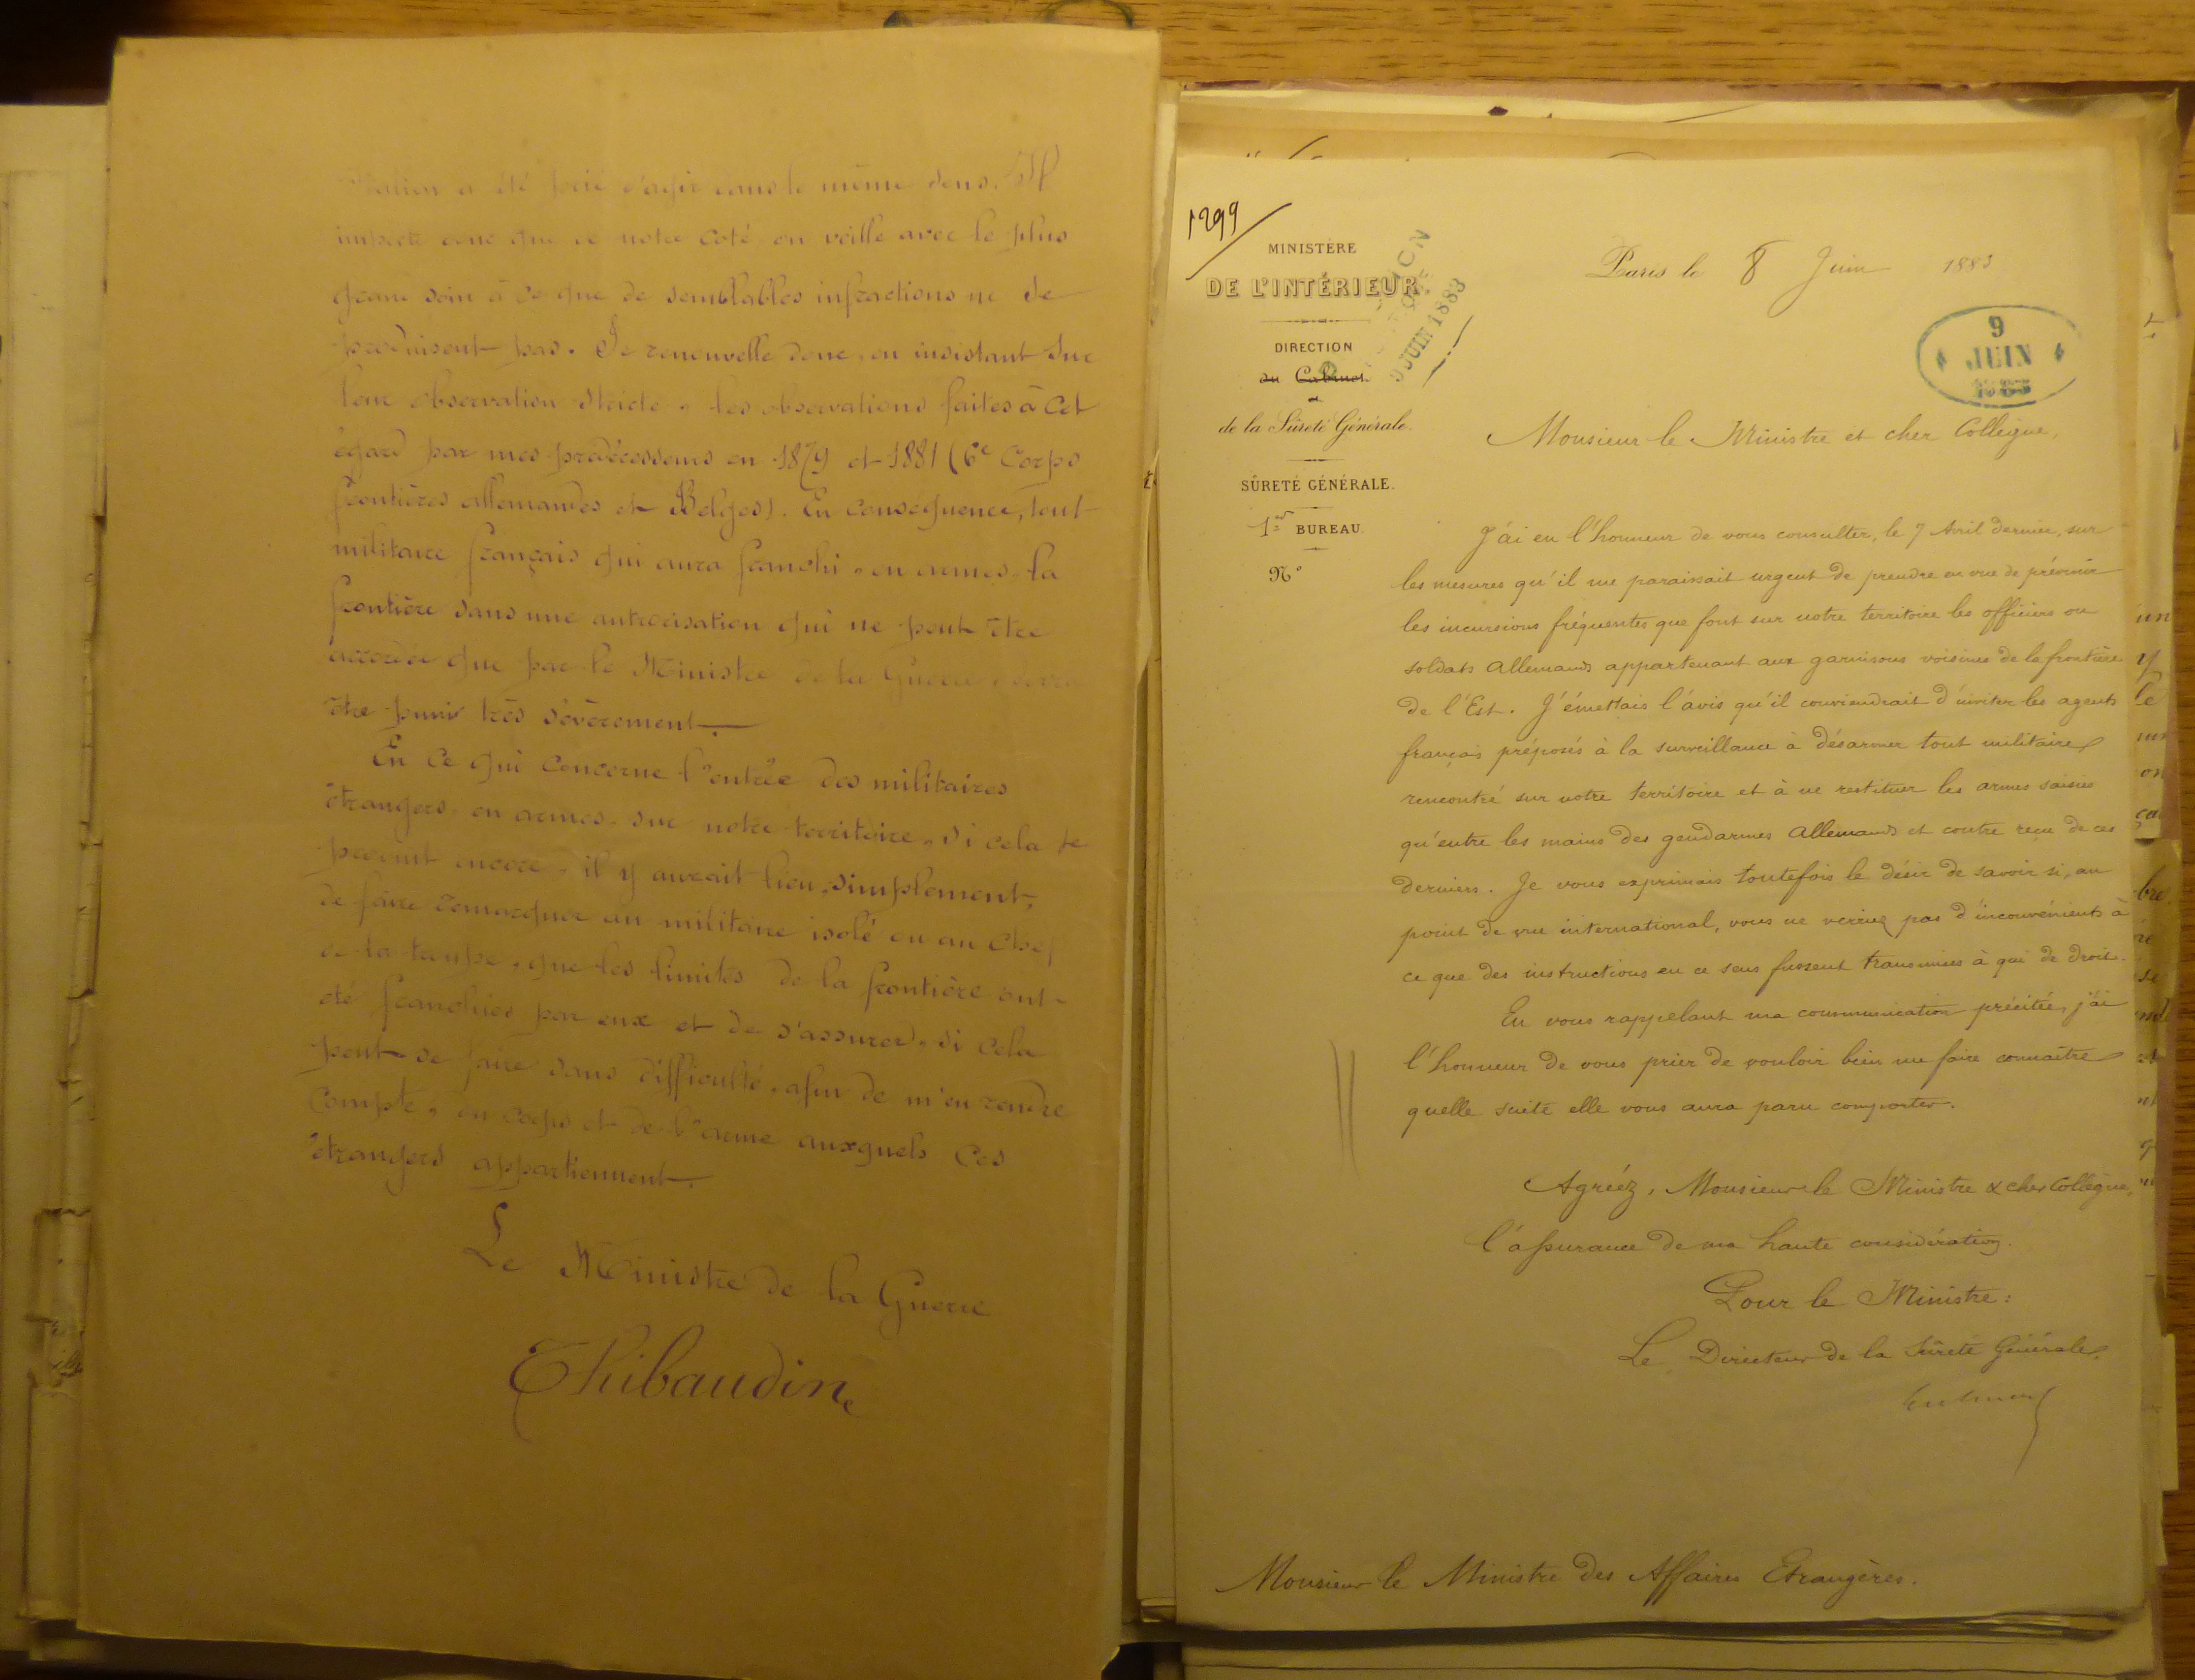 a été prié d'agir dans le même sens. Il
importe donc que de notre coté on veille avec le plus
grand soin à ce que de semblables infractions ne se
produisent pas. Je renouvelle donc, en insistant sur
leur observation stricte, les observations faites à cet
égard par mes prédécesseurs en 1879 et 1881 (6e Corps
frontières allemandes et Belges). En conséquence, tout
militaire français qui aura franchi, en armes, la
frontière sans une autorisation qui ne peut être
accordée que par le Ministre de la Guerre, devra
être puni très sévèrement.
En ce qui concerne l'entrée des militaires
étrangers, en armes, sur notre territoire, si cela se
produit encore, il y aurait lieu, simplement,
de faire remarquer au militaire isolé ou au Chef
de la troupe, que les limites de la frontière ont
été franchies par eux et de s'assurer, si cela
peut se faire sans difficulté, afin de m'en rendre
compte, du corps et de l'arme auxquels ces
étrangers appartiennent.
Le Ministre de la Guerre
Thibaudin
1299
MINISTÈRE
DE L'INTÉRIEUR
DIRECTION
du Cabinet
et
de la Sûreté Générale.
SÛRETÉ GÉNÉRALE.
1er BUREAU.
No
9 JUIN 1883
Paris le 8 Juin 1883
9
JUIN
1883
Monsieur le Ministre et cher Collègue,
J'ai eu l'honneur de vous consulter, le 7 Avril dernier, sur
les mesures qu'il me paraissait urgent de prendre en vue de prévenir
les incursions fréquentes que font sur notre territoire les officiers ou
soldats Allemands appartenant aux garnisons voisines de la frontière
de l'Est. J'émettais l'avis qu'il conviendrait d'inviter les agents
français préposés à la surveillance à désarmer tout militaire
rencontré sur notre territoire et à ne restituer les armes saisies
qu'entre les mains des gendarmes Allemands et contre reçu de ces
derniers. Je vous exprimais toutefois le désir de savoir si, au
point de vue international, vous ne verriez pas d'inconvénients à
ce que des instructions en ce sens fussent transmises à qui de droit.
En vous rappelant ma communication précitée, j'ai
l'honneur de vous prier de vouloir bien me faire connaître
quelle suite elle vous aura paru comporter.
Agréez, Monsieur le Ministre & cher Collègue,
l'assurance de ma haute considération.
Pour le Ministre:
Le Directeur de la Sûreté Générale,
Monsieur le Ministre des Affaires Etrangères.